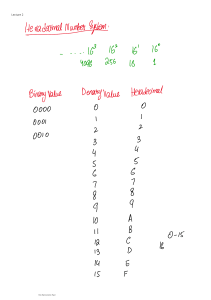 Lesson 2
Hexadecimal Number System
- ..... 16³ 16² 16¹ 16⁰
4096 256 16 1
Binary Value Denary Value Hexadecimal
0000 0 0
0001 1 1
0010 2 2
3 3
4 4
5 5
6 6
7 7
8 8
9 9
10 A
11 B
12 C 0-15
13 D 16
14 E
15 F